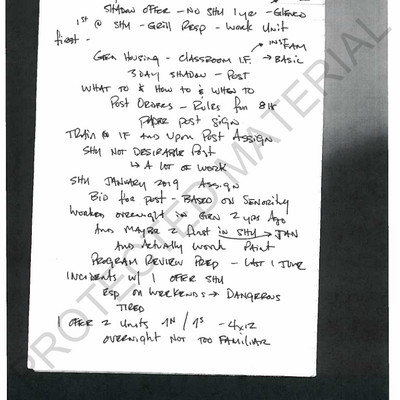 SHADOW OFFER - NO SHU 1 yr -
1st @ SHU - Grill Resp - Work Unit
first -
→ INST FAM
Gen Housing - Classroom IF → BASIC
3 DAY SHADOW - POST
WHAT TO & HOW TO & WHEN TO
Post Orders - Rules for 8H
PAPER post SIGN
TRAIN @ IF AND UPON POST ASSIGN
SHU NOT DESIRABLE Post
↳ A LOT OF WORK
SHU JANUARY 2019 ASSIGN
BID for POST - BASED ON SENORITY
WORKED OVERNIGHT IN GEN 2 yrs Ago
AND MAYBE 2 first in SHU → JAN
AND Actually WORK
PROGRAM REVIEW PREP - LAST 1 TIME
INCIDENTS w/ 1 OFFER SHU
RSP ON WEEKENDS → DANGEROUS
TIRED
1 OFFER 2 UNITS 1N / 1S - 4x12
OVERNIGHT NOT TOO FAMILIAR
PROTECTED MATERIAL